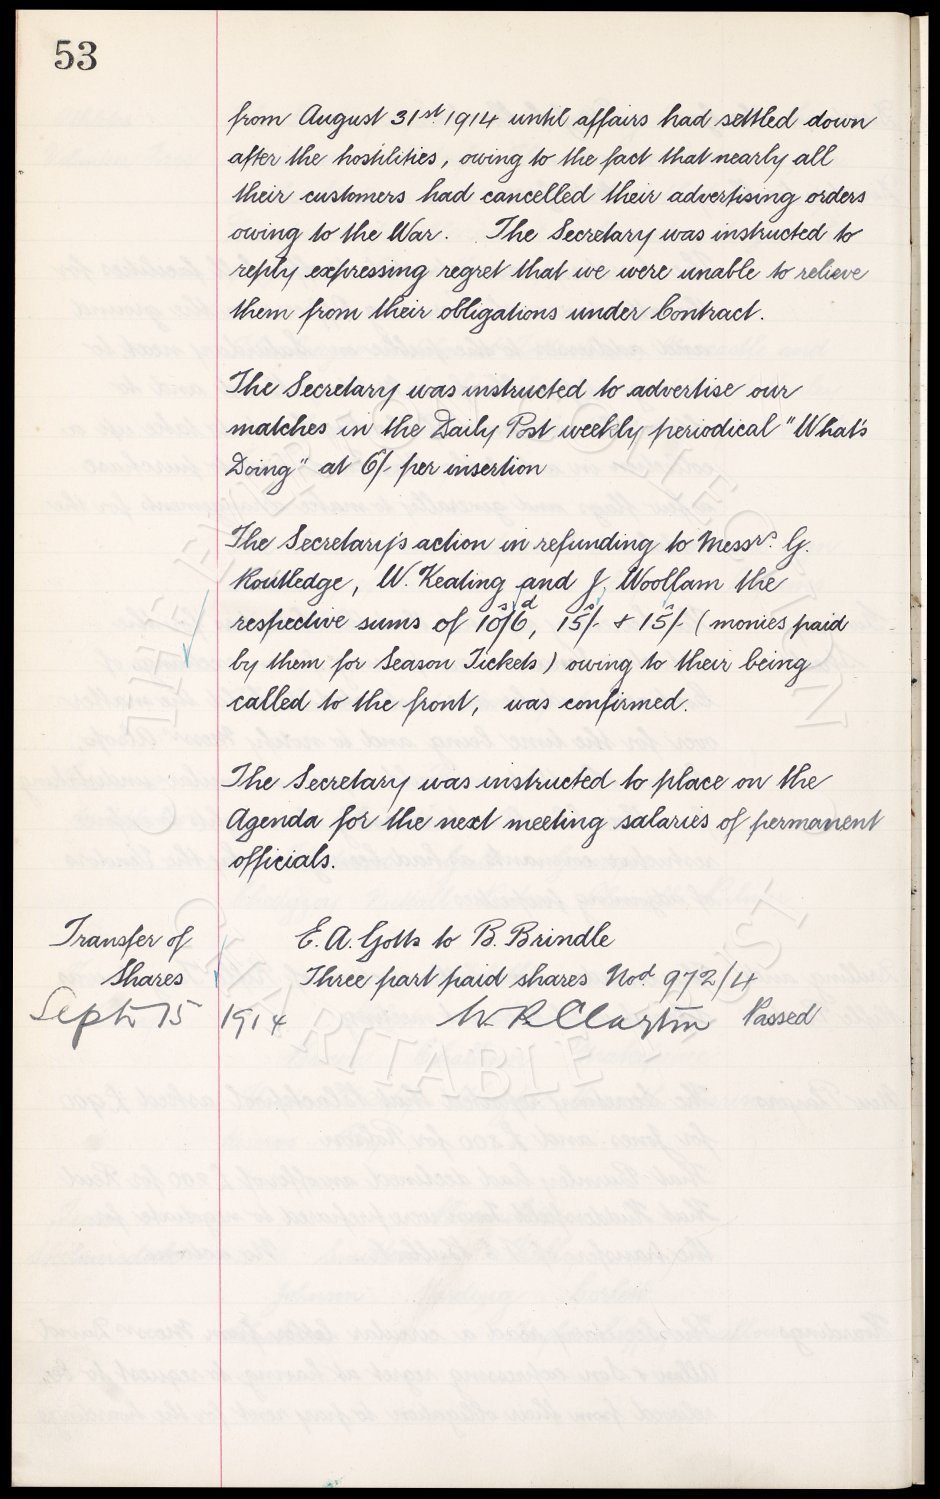 53
from August 31st 1914 until affairs had settled down
after the hostilities, owing to the fact that nearly all
their customers had cancelled their advertising orders
owing to the War. The Secretary was instructed to
reply expressing regret that we were unable to relieve
them from their obligations under Contract.
The Secretary was instructed to advertise our
matches in the Daily Post weekly periodical "What's
Doing" at 6/- per insertion
The Secretary's action in refunding to Messrs. G.
Routledge, W. Keating and J. Woolfam the
respective sums of 10s/6d, 15s/- & 15s/- (monies paid
by them for Season Tickets) owing to their being
called to the front, was confirmed.
The Secretary was instructed to place on the
Agenda for the next meeting salaries of permanent
officials.
Transfer of E. A. Gotts to B. Brindle
Shares Three part paid shares Nod. 972/4
Sept 15 1914 W. R. Clayton Passed
THE EVERTON COLLECTION
CHARITABLE TRUST